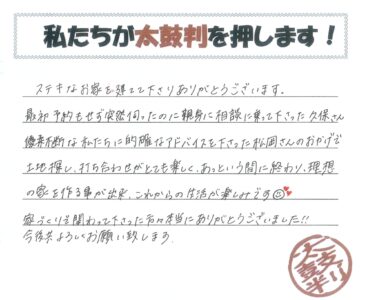 私たちが太鼓判を押します！
ステキなお家を建てて下さりありがとうございます。
最初予約もせず突然伺ったのに親身に相談に乗って下さった久保さん
優柔不断な私たちに的確なアドバイスを下さった松岡さんのおかげで
土地探し、打ち合わせがとても楽しく、あっという間に終わり、理想
の家を作る事が出来、これからの生活が楽しみです
家づくりを関わって下さった方々本当にありがとうございました!!
今後共よろしくお願い致します。
太鼓判